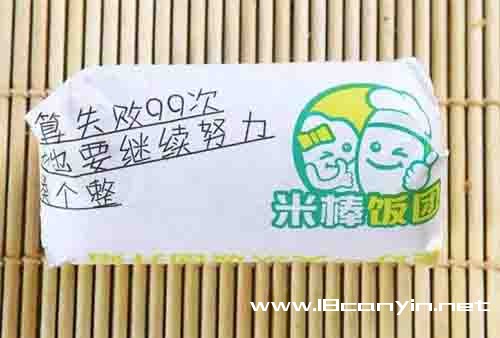 算失败99次
也要继续努力
凑个整
米棒饭团
www.18canyin.net